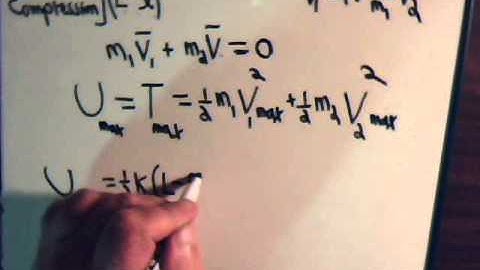 Compression](L-x)
m₁V̄₁ + m₂V̄ = 0
U_max = T_max = ½ m₁ V₁²_max + ½ m₂ V₂²_max
U = ½ K (L -